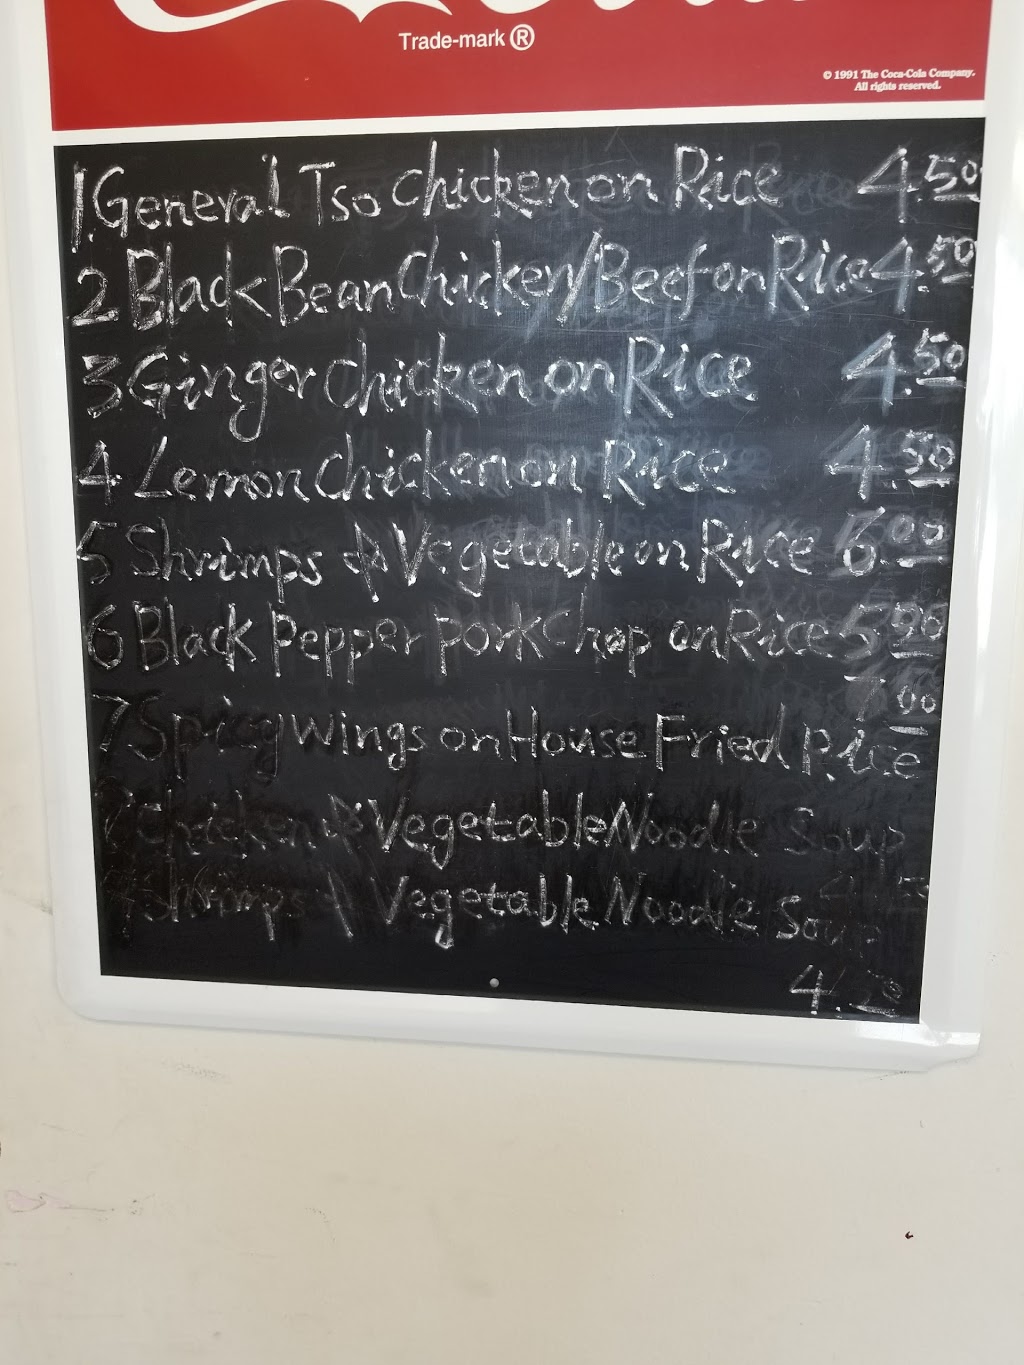 Trade-mark ®
© 1991 The Coca-Cola Company.
All rights reserved.
1. General Tso Chicken on Rice 4.50
2 Black Bean Chicken/Beef on Rice 4.50
3 Ginger Chicken on Rice 4.50
4 Lemon Chicken on Rice 4.50
5 Shrimps & Vegetable on Rice 6.00
6 Black Pepper pork Chop on Rice 5.50
7.00
7 Spicy Wings on House Fried Rice
Chicken & Vegetable Noodle Soup
Shrimps & Vegetable Noodle Soup